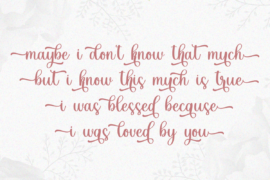 maybe i don't know that much
but i know this much is true
i was blessed because
i was loved by you